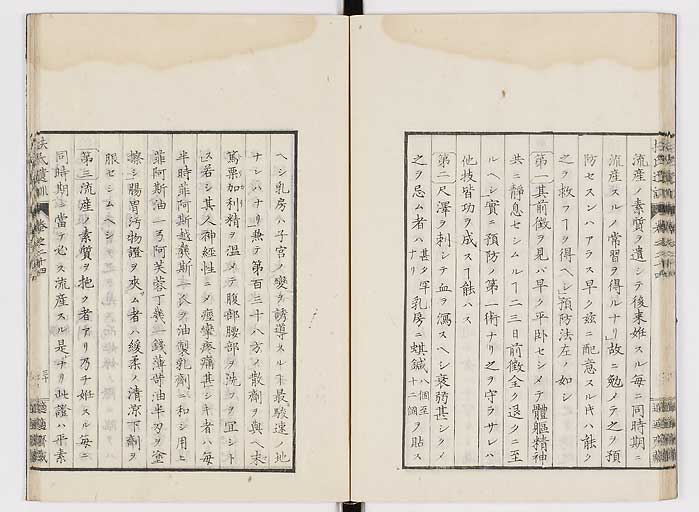 流産ノ素質ヲ遺シテ後来姙スル毎ニ同時期ニ
流産スルノ常習ヲ得ルナリ故ニ勉メテ之ヲ預
防セスンハアラス早ク玆ニ配意スル片ハ能ク
之ヲ救フヿヲ得ヘシ預防法左ノ如シ
第一其前徴ヲ見ハ早ク平卧セシメテ體軀精神
共ニ静息セシムルヿ二三日前徴全ク退クニ至
ルヘシ實ニ預防ノ第一術ナリ之ヲ守ラサレハ
他技皆功ヲ成スヿ能ハス
第二尺澤ヲ刺シテ血ヲ瀉スヘシ衰弱甚シクメ
之ヲ忌ム者ハ甚タ罕ナリ乳房ニ蜞鍼八個至十二個ヲ貼ス
ヘシ乳房ハ子宮ノ變ヲ誘導スルニ最駿速ノ地
ナレハナリ兼テ第百三十八方ノ散劑ヲ與ヘ末
篤栗加利精ヲ温メテ腹部腰部ヲ洗フヲ宜シト
ス若シ其人神經性ニメ痙攣疼痛甚シキ者ハ毎
半時菲阿斯越幾斯一氏ヲ油製乳劑ニ和シ用ヒ
菲阿斯油一弓阿芙蓉丁幾一錢薄荷油半刃ヲ塗
擦シ腸胃汚物證ヲ夾ム者ハ緩柔ノ清涼下劑ヲ
服セシムヘシ
第三流産ノ素質ヲ抱ク者アリ乃チ姙スル毎ニ
同時期ニ當テ必ス流産スル是ナリ此證ハ平素
扶氏遺訓 卷之二十四